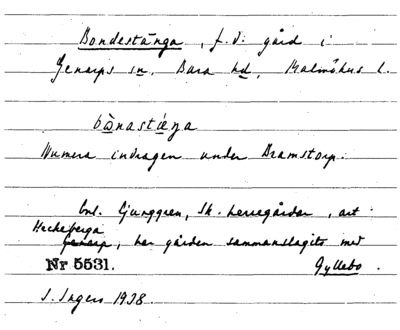 Bondestånga, f.d. gård i
Genarps sn. Bara hd, Malmöhus l.
Numera indragen under Bramstorp.
Enl. Ljunggren, Sk. herregårdar, art.
Heckeberga
Genarp, har gården sammanslagits med
Nr 5531. Gyllebo.
S. Ingers 1938.